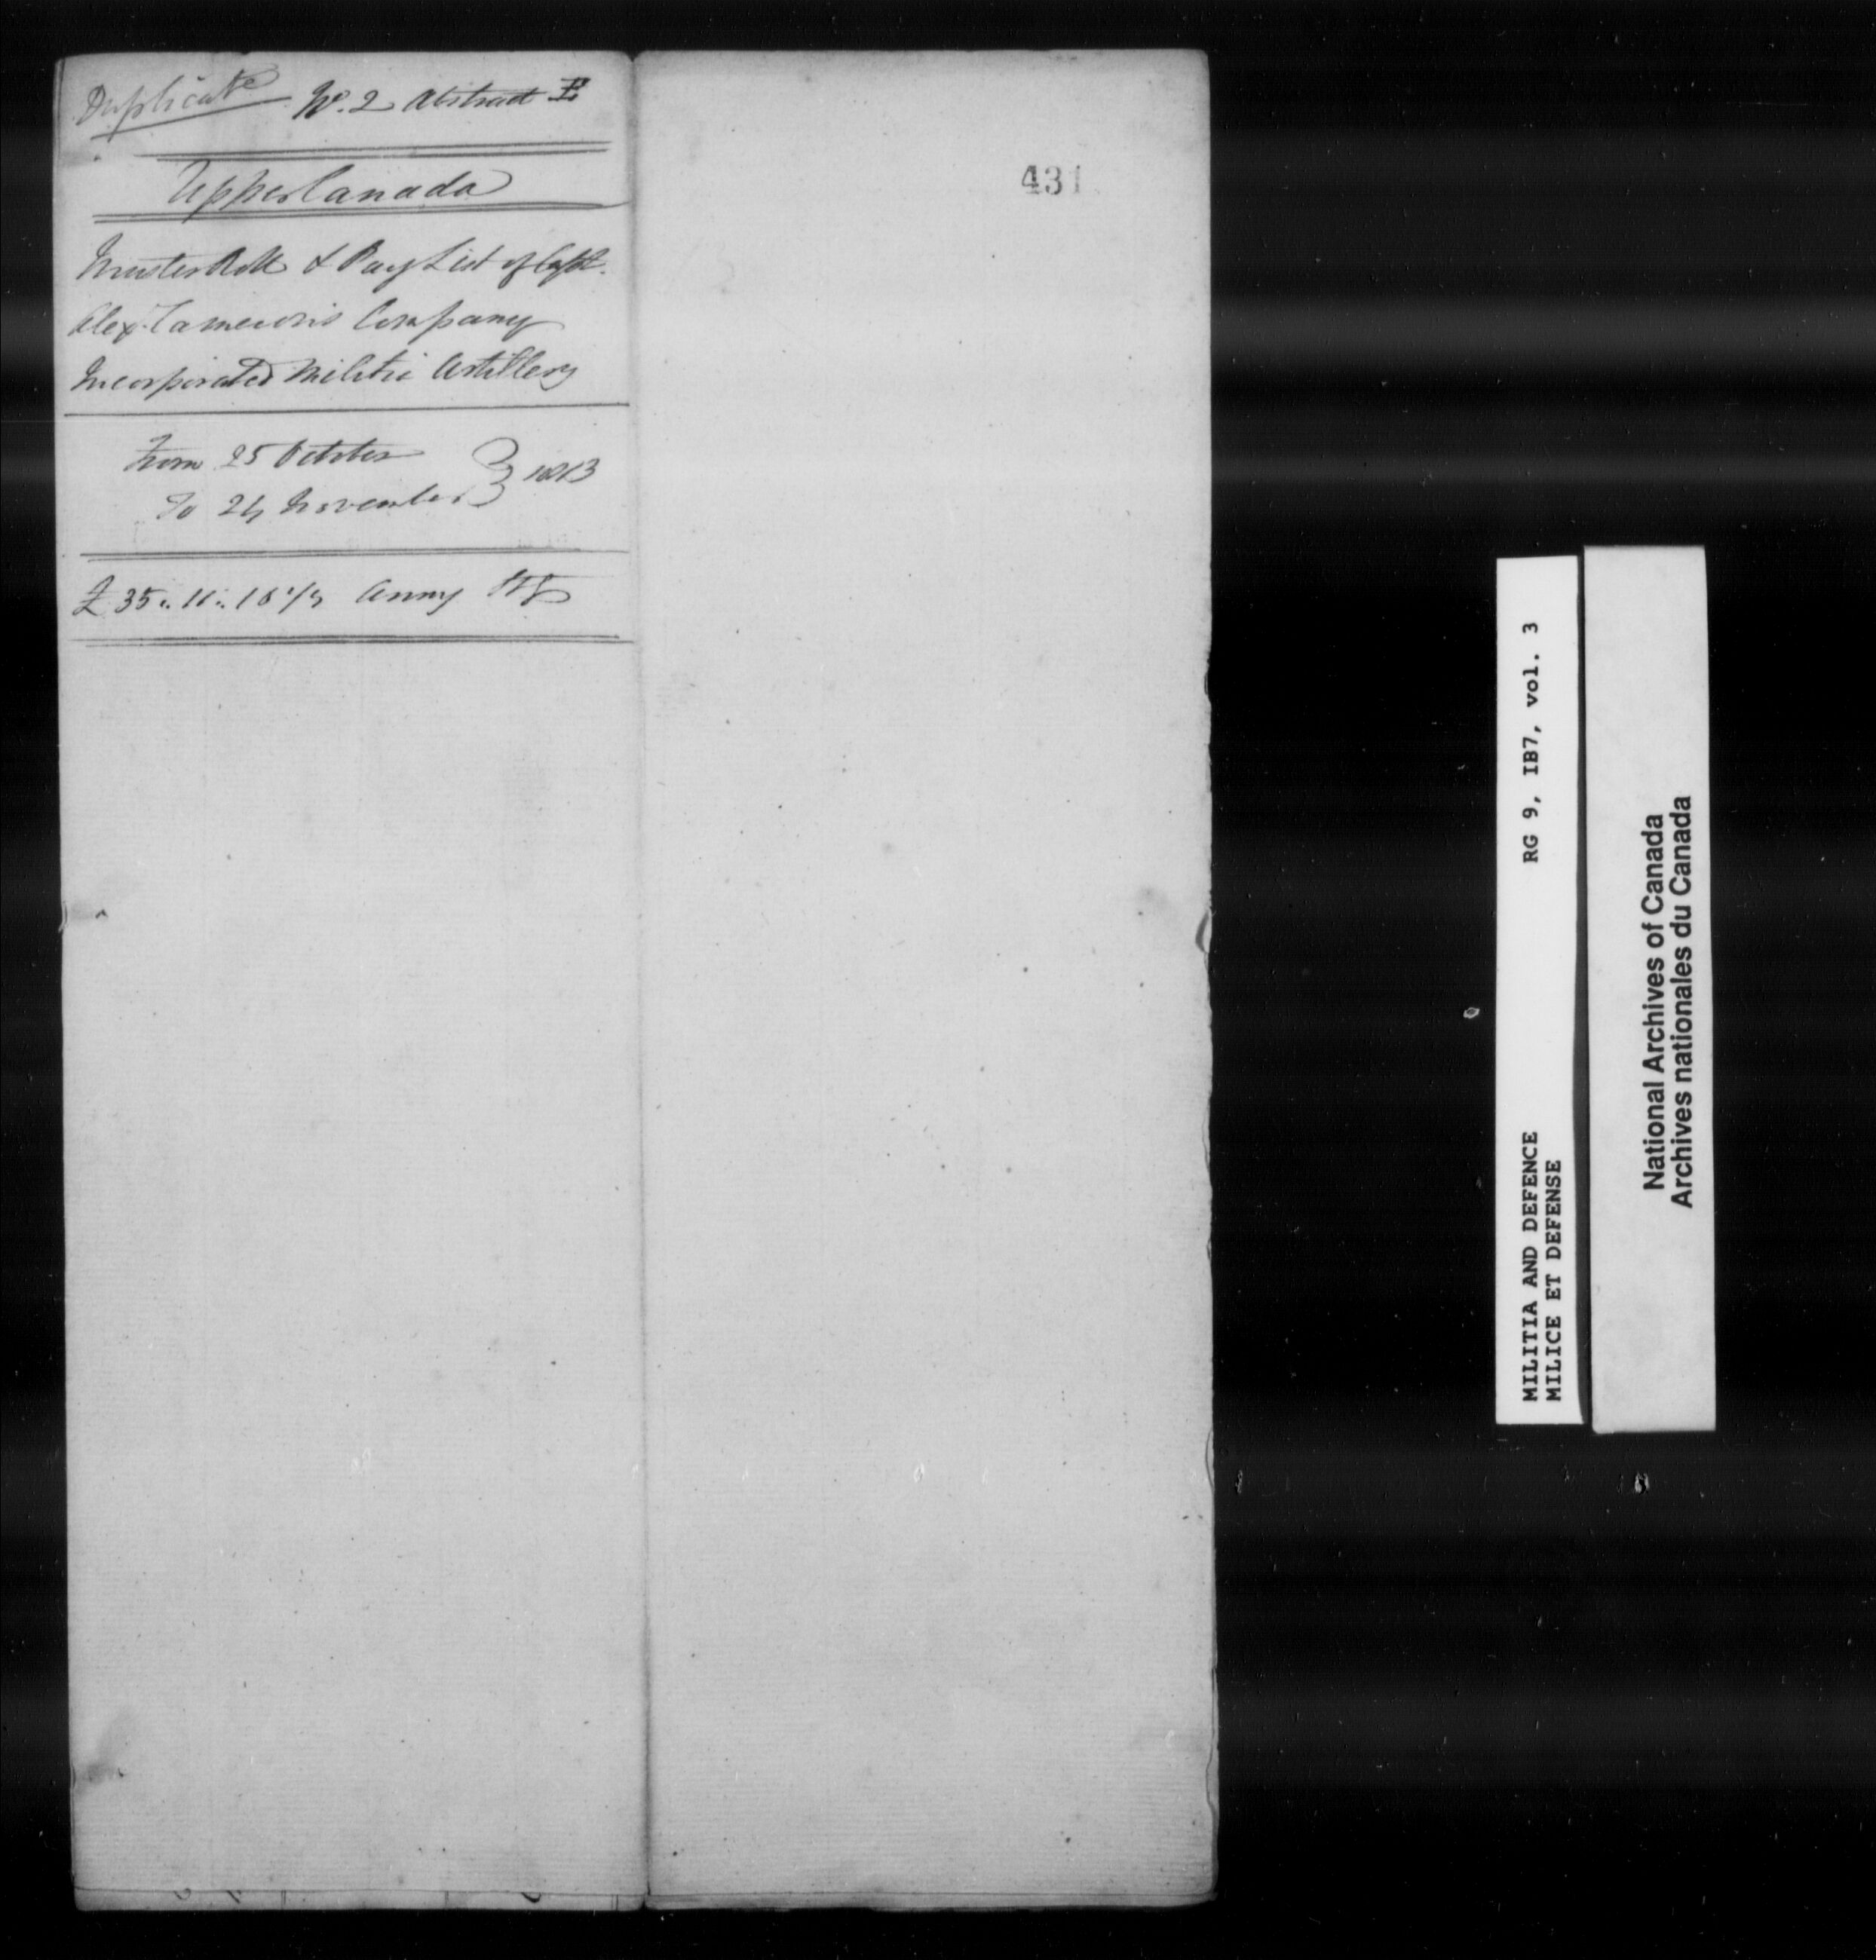 Duplicate No. 2 Abstract E
Upper Canada
Muster Roll & Pay List of Capt.
Alexr. Cameron's Company
Incorporated Militia Artillery
From 25 October
To 24 November } 1813
£ 35 .. 11 .. 10 1/2 Army
431
RG 9, IB7, vol. 3
MILITIA AND DEFENCE
MILICE ET DEFENSE
National Archives of Canada
Archives nationales du Canada